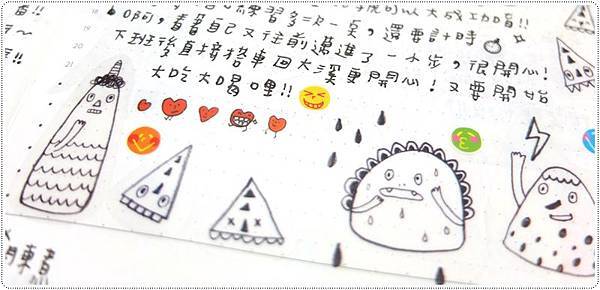 可以大成功唷!!
練習多=次一頁，還要計時
啊，看看自己又往前邁進了一小步，很開心!
下班後直接搭車回大溪更開心！又要開始
大吃大喝哩!!